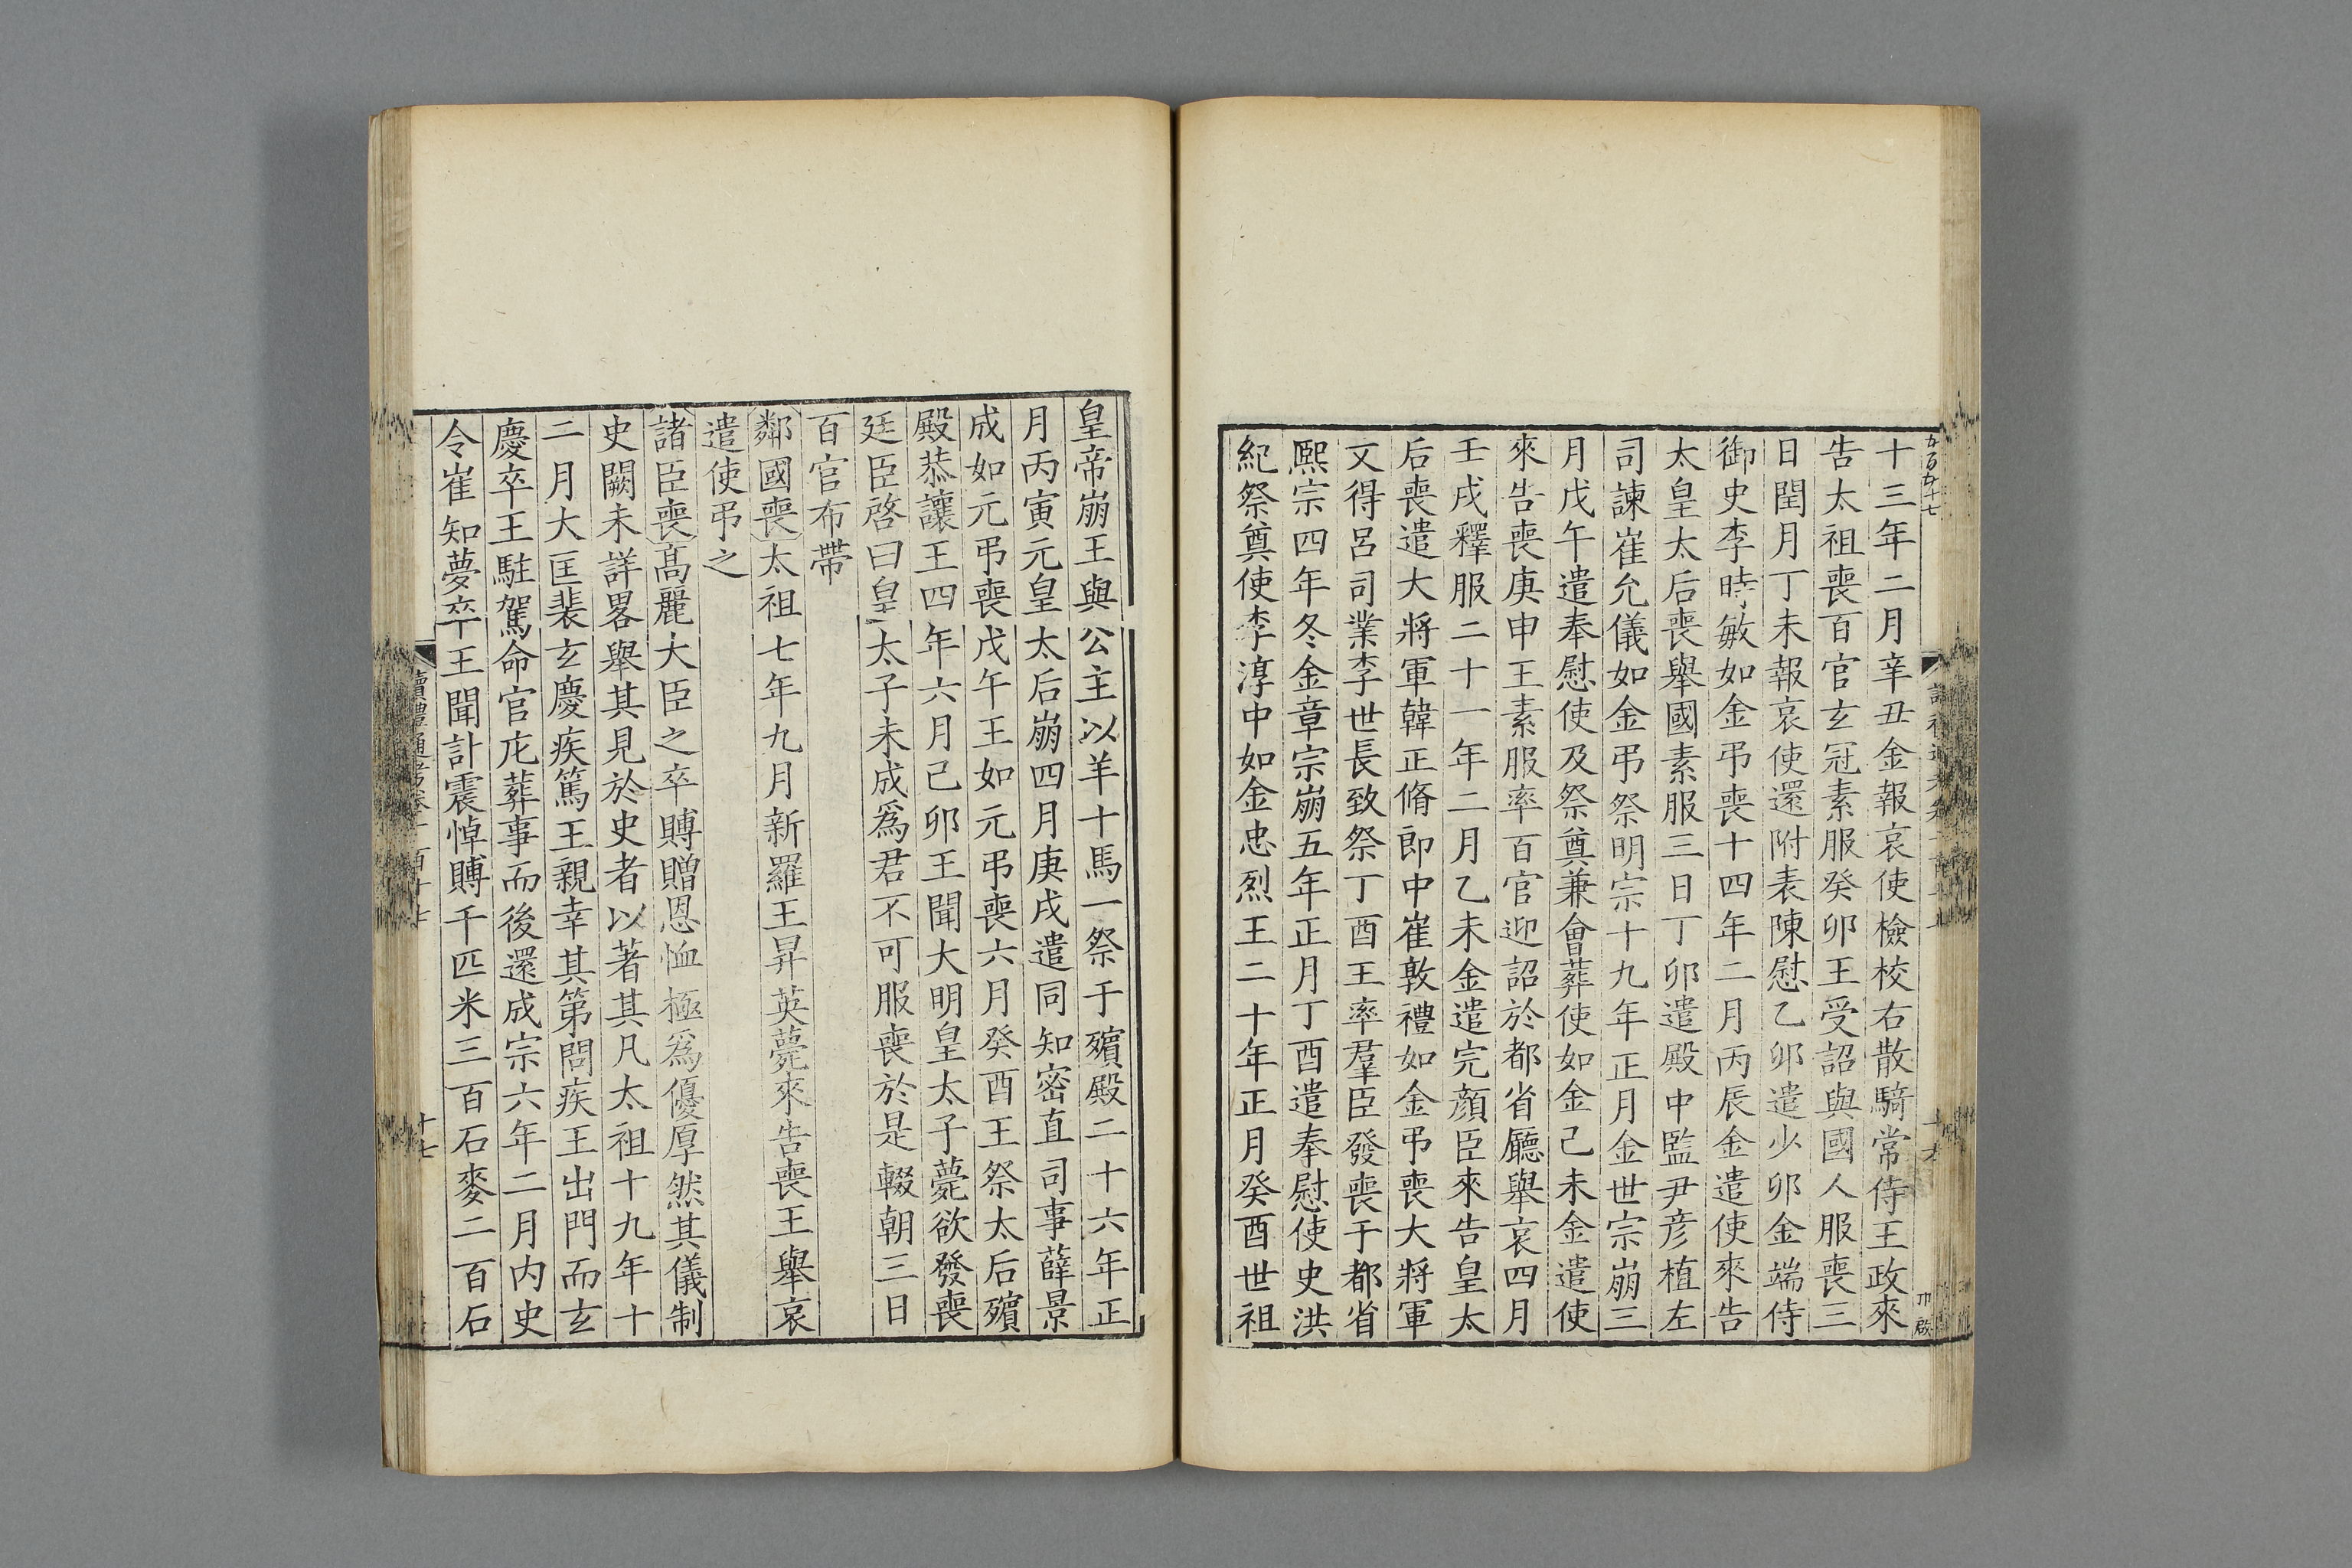 五百五十七
十三年二月辛丑金報哀使檢校右散騎常侍王政來
告太祖喪百官玄冠素服癸卯王受詔與國人服喪三
日閏月丁未報哀使還附表陳慰乙卯遣少卯金端侍
御史李時敏如金弔喪十四年二月丙辰金遣使來告
太皇太后喪舉國素服三日丁卯遣殿中監尹彦植左
司諫崔允儀如金弔祭明宗十九年正月金世宗崩三
月戊午遣奉慰使及祭奠兼會葬使如金己未金遣使
來告喪庚申王素服率百官迎詔於都省廳舉哀四月
壬戌釋服二十一年二月乙未金遣完顔臣來告皇太
后喪遣大將軍韓正脩郎中崔敦禮如金弔喪大將軍
文得呂司業李世長致祭丁酉王率羣臣發喪于都省
熙宗四年冬金章宗崩五年正月丁酉遣奉慰使史洪
紀祭奠使李淳中如金忠烈王二十年正月癸酉世祖
皇帝崩王與公主以羊十馬一祭于殯殿二十六年正
月丙寅元皇太后崩四月庚戌遣同知密直司事薛景
成如元弔喪戊午王如元弔喪六月癸酉王祭太后殯
殿恭讓王四年六月己卯王聞大明皇太子薨欲發喪
廷臣啓曰皇太子未成爲君不可服喪於是輟朝三日
百官布帶
鄰國喪太祖七年九月新羅王昇英薨來告喪王舉哀
遣使弔之
諸臣喪高麗大臣之卒賻贈恩恤極爲優厚然其儀制
史闕未詳畧舉其見於史者以著其凡太祖十九年十
二月大匡裴玄慶疾篤王親幸其第問疾王出門而玄
慶卒王駐駕命官庀葬事而後還成宗六年二月内史
令崔知夢卒王聞訃震悼賻千匹米三百石麥二百石
讀禮通考卷一百十七
十七